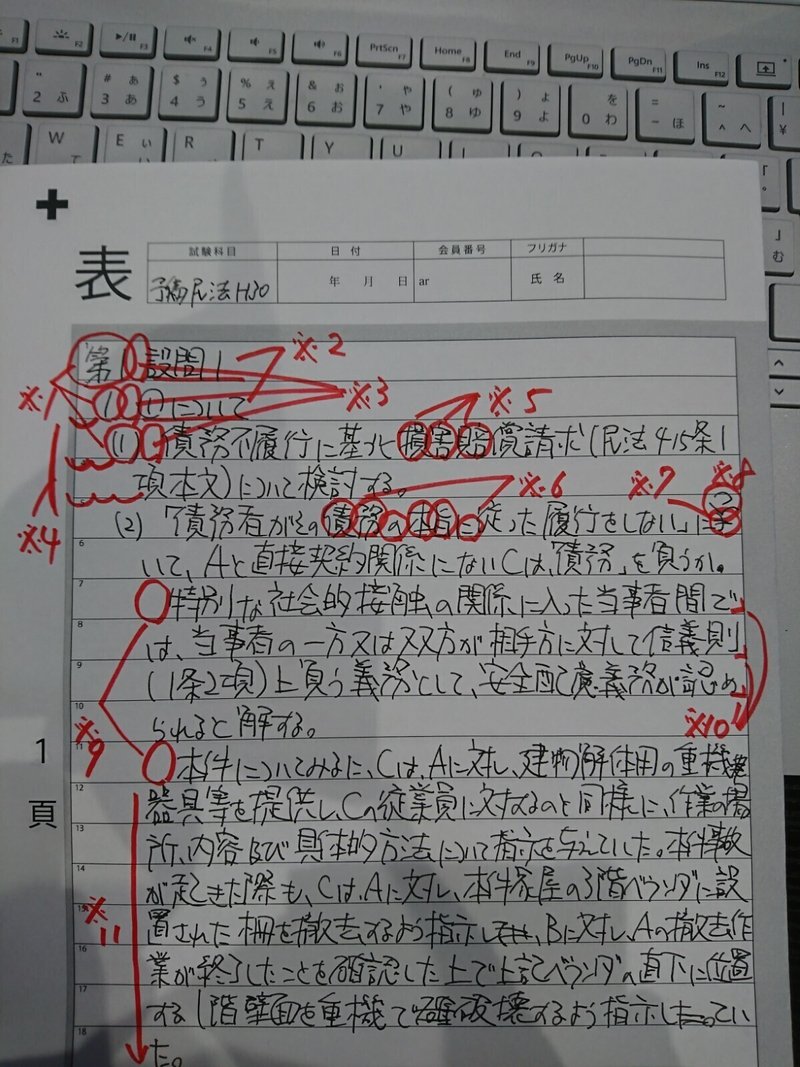 F1 F2 F3 F4 F5 F6 PrtScn F7 Home F8 End F9 PgUp F10 PgDn F11 Ins F12
" 2 ふ # ぁ 3 あ $ ぅ 4 う % ぇ 5 え & ぉ 6 お ' ゃ 7 や ( ゅ 8 ゆ ) ょ 9 よ を 0 わ = - ほ ~ ^ へ | ¥
た W て E ぃ い R T Y U I O
」 む
表
試験科目 日付 会員番号 フリガナ
予備民法H30 年 月 日 ar 氏名
第1 設問1 ※2
※1 1 ①について ※3
(1) 債務不履行に基づく損害賠償請求(民法415条1 ※5
項本文)について検討する。 ※6 ※7 ※8
※4 (2) 「債務者がその債務の本旨に従った履行をしない」に つ
いて、Aと直接契約関係にないCは、「債務」を負うか。
特別な社会的接触の関係に入った当事者間で
は、当事者の一方又は双方が相手方に対して信義則
(1条2項)上負う義務として、安全配慮義務が認め
られると解する。 ※10
※9
本件についてみるに、Cは、Aに対し、建物解体用の重機
器具等を提供し、Cの従業員に対するのと同様に、作業の場
所、内容及び具体的方法について指示を与えていた。本件事故
が起きた際も、Cは、Aに対し、本件家屋の3階ベランダに設
置された柵を撤去するよう指示し、Bに対し、Aの撤去作
※11
業が終了したことを確認した上で上記ベランダの直下に位置
する1階壁面を重機で破壊するよう指示してい
た。
1
頁
6
7
8
9
10
11
12
13
14
15
16
17
18